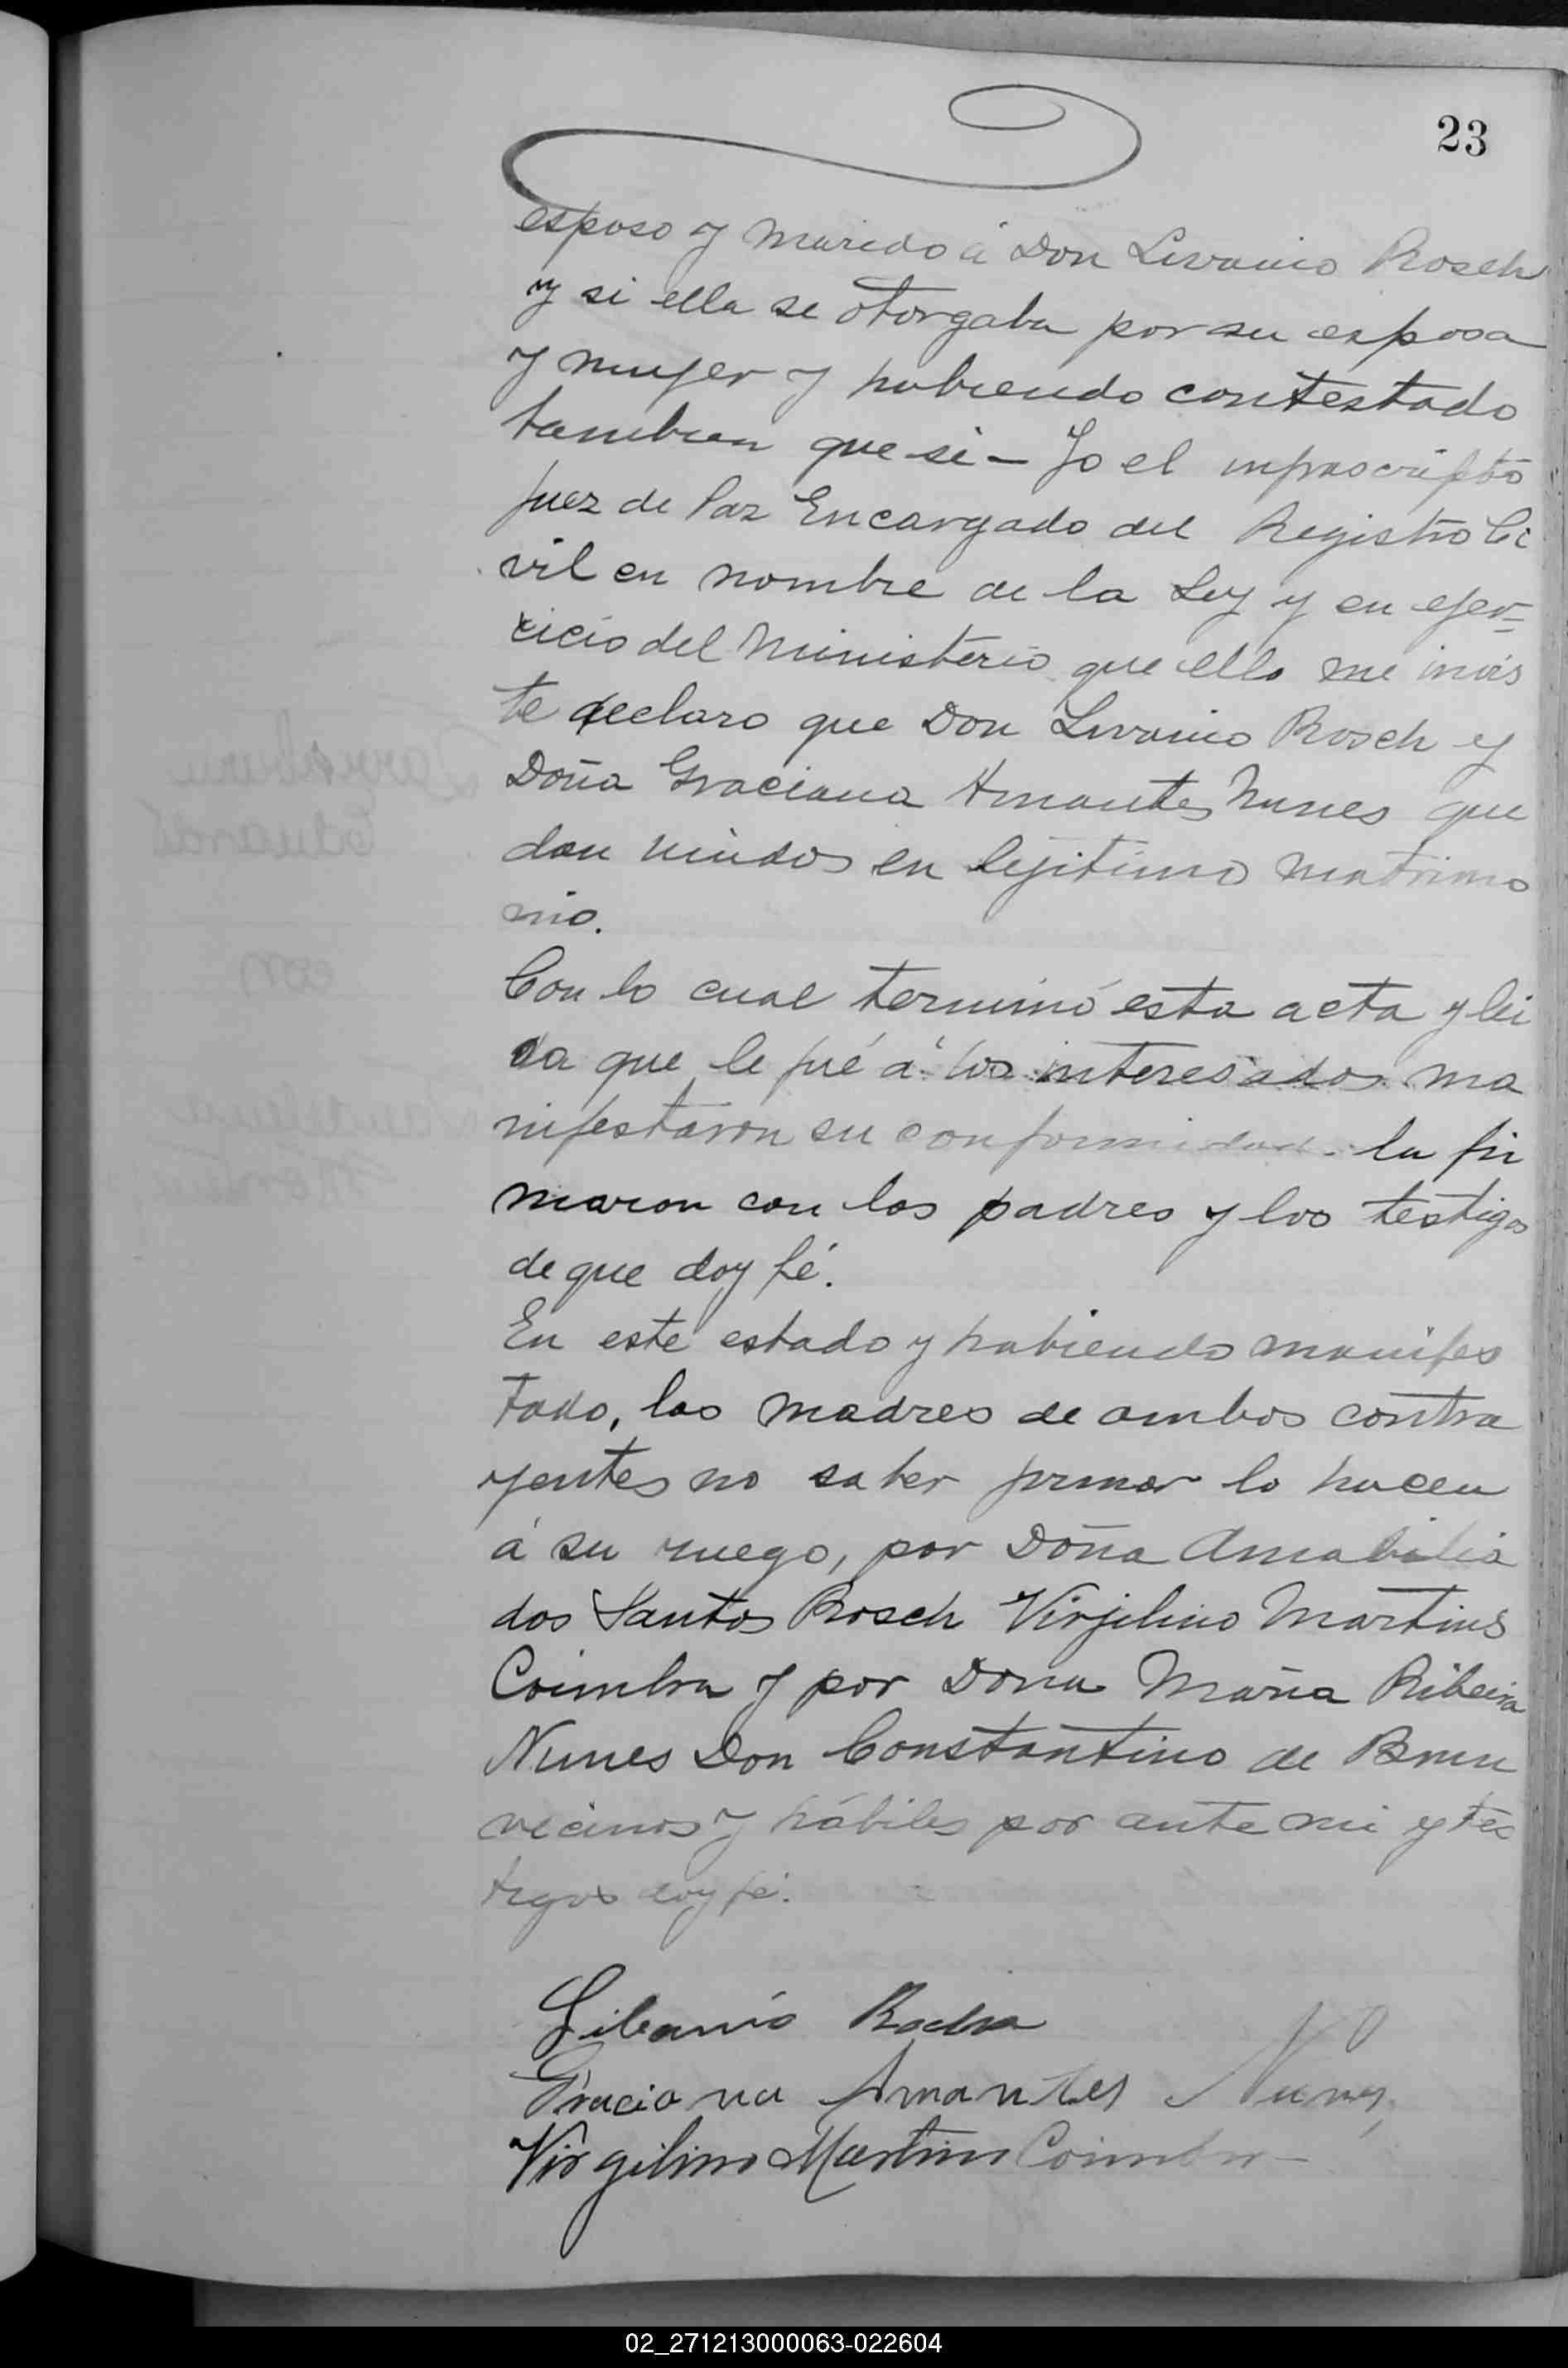 23
esposo y marido á Don Livanio Rosch
y si ella se otorgaba por su esposa
y mujer y habiendo contestado
tambien que si – Yo el infrascripto
Juez de Paz Encargado del Registro Ci
vil en nombre de la Ley y en ejer=
cicio del Ministerio que ella me invis
te declaro que Don Livanio Rosch y
Doña Graciana Amantes Nunes que
dan unidos en lejitimo matrimo
nio.
Con lo cual terminó esta acta y lei
da que le fué á los interesados ma
nifestaron su conformidad la fir
maron con los padres y los testigos
de que doy fé.
En este estado y habiendo manifes
tado, las madres de ambos contra
yentes no saber firmar lo hacen
á su ruego, por Doña Amabilia
dos Santos Rosch Virjilino Martins
Coimbra y por Dona Maria Ribeira
Nunes Don Constantino de Brum
vecinos y hábiles por ante mi y tes
tigos doy fé.
Libanio Rocha
Graciana Amantes Nunes
Virgilino Martins Coimbra
Eduardo
con
02_271213000063-022604